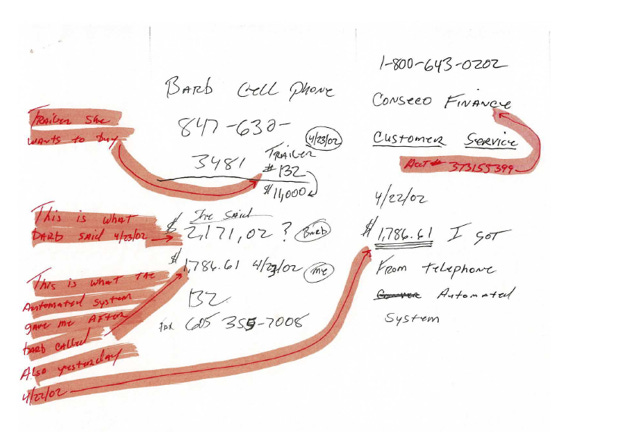 Trailer she
wants to buy
Barb Cell Phone
847-630-
3481
4/23/02
Trailer
# 132
$11,000
1-800-643-0202
Conseco Finance
Customer Service
Acct # 373155399
This is what
Barb said 4/23/02
She said
$2,171,02 ? Barb
$1,786.61 4/23/02 me
132
Fax 355-7008
This is what the
Automated system
gave me after
barb called
Also yesterday
4/22/02
4/22/02
$1,786.61 I got
From telephone
Automated
System